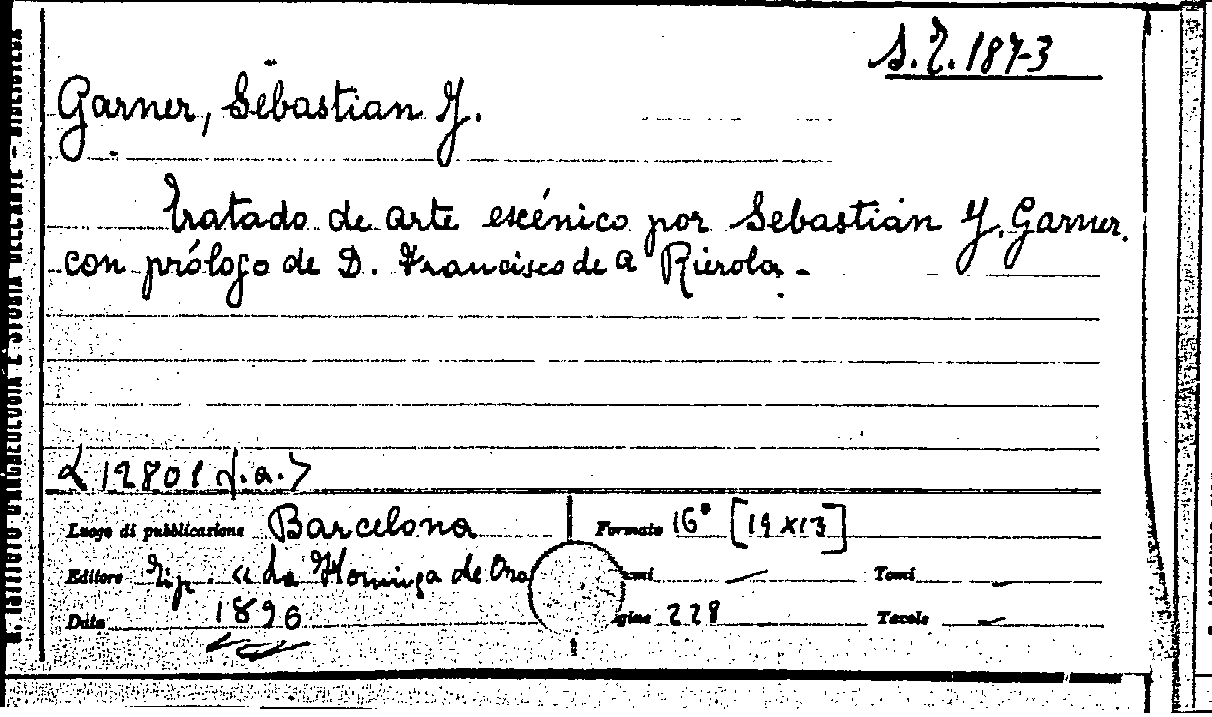 S.T. 187-3
Garner, Sebastian J.
Tratado de arte escénico por Sebastián J. Garner.
con prólogo de D. Francisco de A Pierola -
<12801 f.a.>
Luogo di pubblicazione Barcelona
Formato 16° [19x13]
Editore Tip. « La Hormiga de Oro
Tomi —
Data 1896
228
Tavole —
R. ISTITUTO D'ARCHEOLOGIA E STORIA DELL'ARTE - BIBLIOTECA